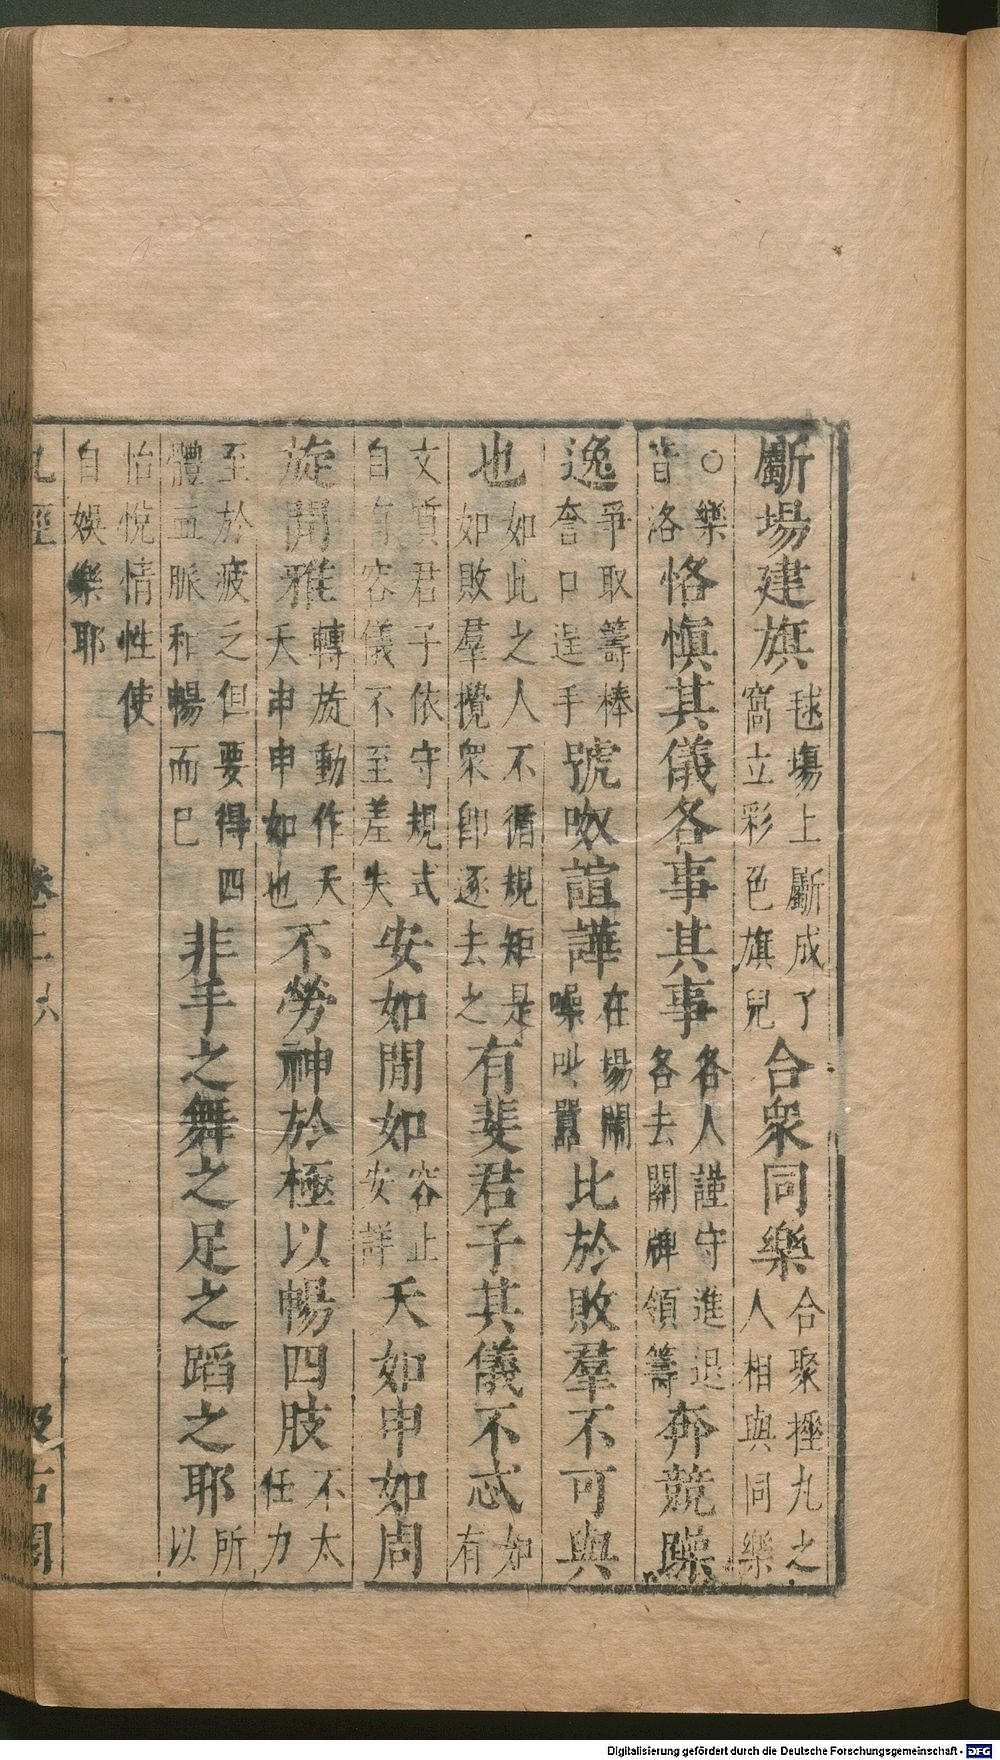 斸場建旗毬塲上斸成了窩立彩色旗兒合衆同樂合聚捶九之人相與同樂
○樂音洛恪愼其儀各事其事各人謹守進退各去關牌領籌奔競躁
逸爭取籌棒奢口逞手號呶諠譁在場鬧噪吵囂比於敗羣不可與
也如此之人不循規矩是如敗羣攪衆卽逐去之有斐君子其儀不忒如有
文質君子依守規式自有容儀不至差失安如閒如容止安詳夭如申如周
旋閒雅轉旋動作夭夭申申如也不勞神於極以暢四肢不太任力
至於疲乏但要得四體血脈和暢而已非手之舞之足之蹈之耶所以
怡悅情性使自娛樂耶
九經 卷二 六 汲古閣
Digitalisierung gefördert durch die Deutsche Forschungsgemeinschaft - DFG